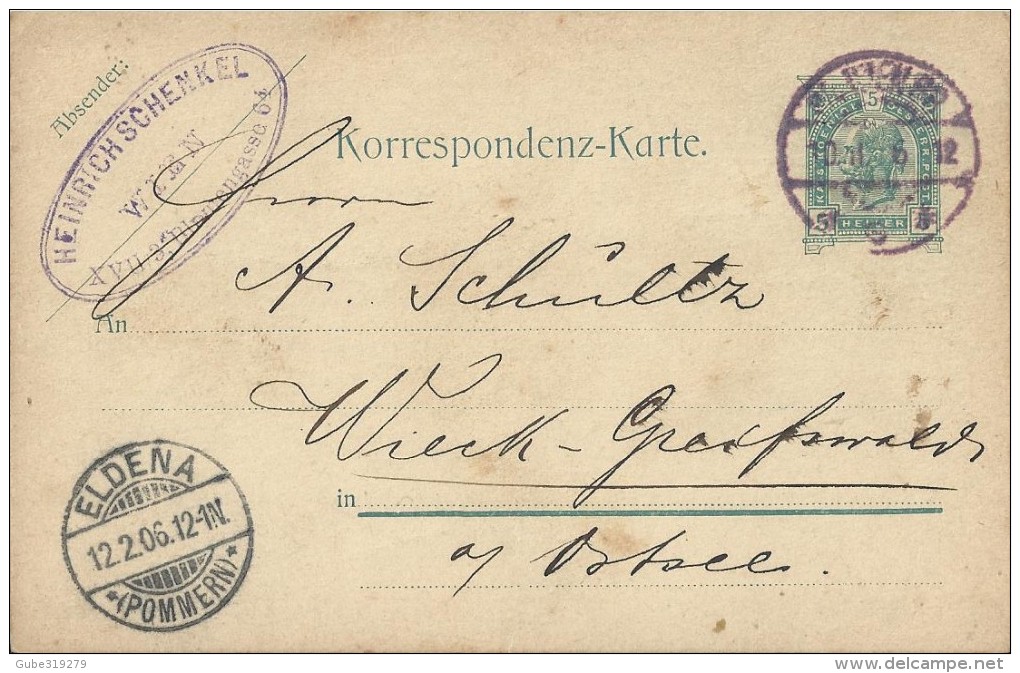 Absender:
HEINRICH SCHENKEL
WIEN
Korrespondenz-Karte.
5
5 HELLER
Herrn
An A. Schültz
Wieck-Greifswald
in
a/ Ostsee.
ELDENA
12.2.06.12-1N.
*(POMMERN)*
Gube319279
delcampe.net